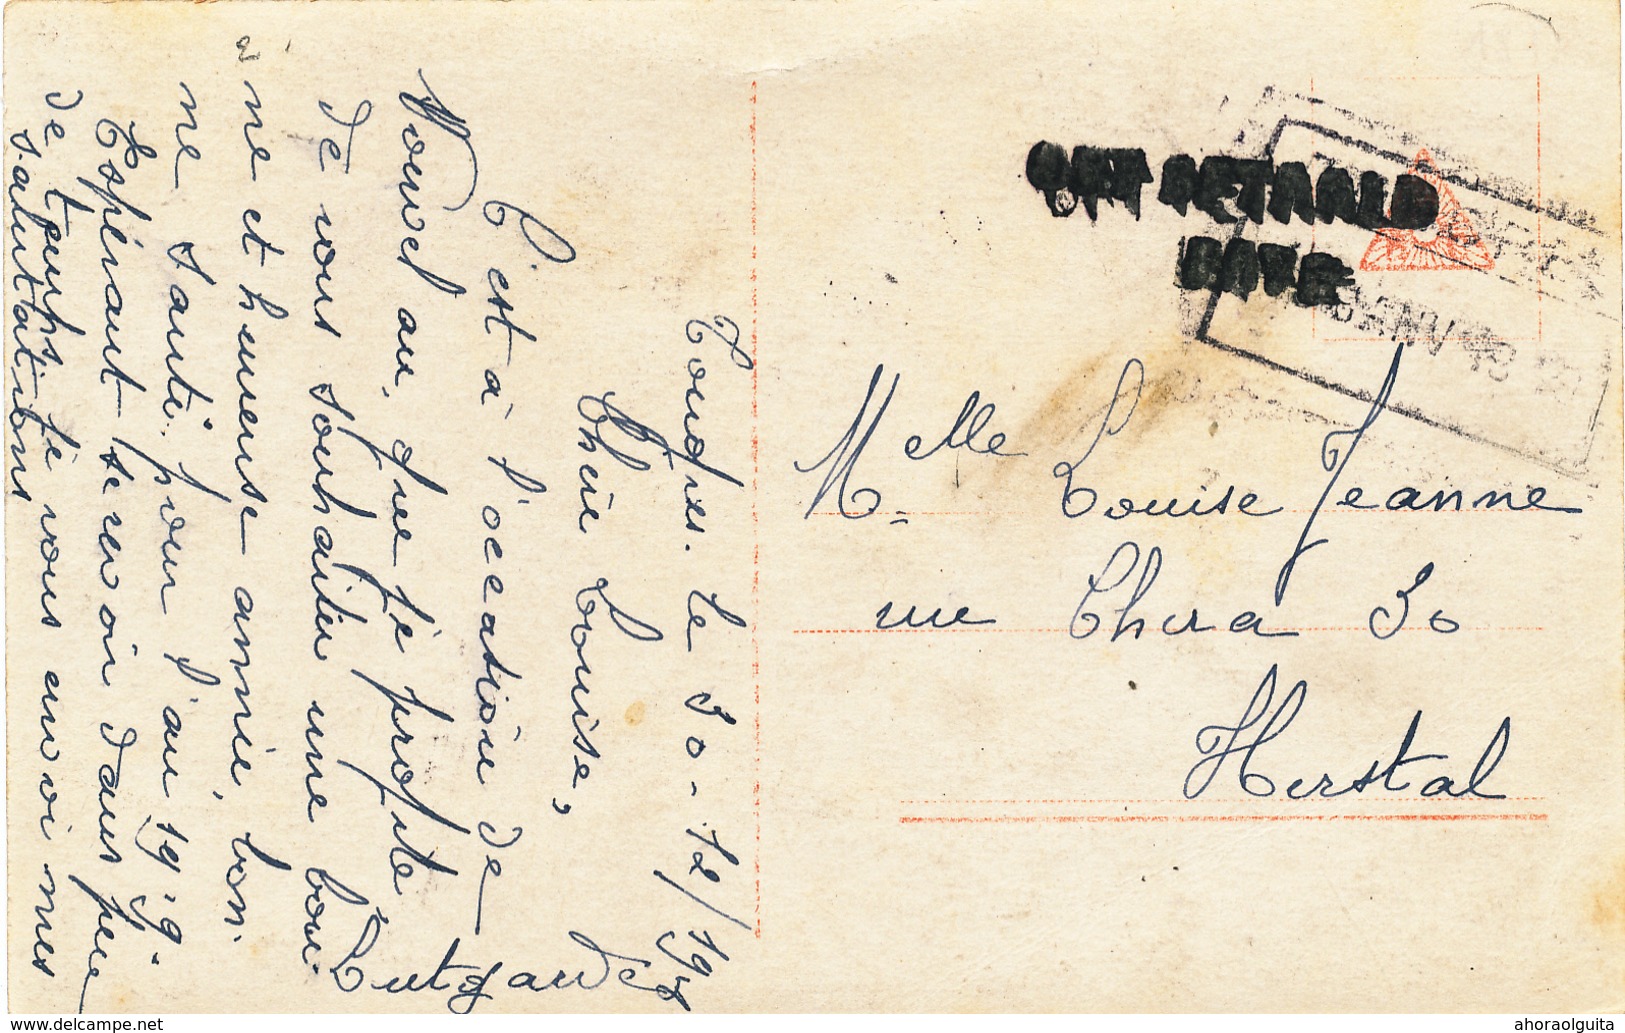 Tongres. le 30-12/1918
Chère Louise,
C'est à l'occation de
Nouvel an, que je profite
de vous souhaiter une bon-
ne et heureuse année, bon-
ne santé, pour l'an 1919.
Espérant se revoir dans peu
de temps je vous envoi mes
salutations
M.elle Louise Jeanne
rue Chera 30
Herstal
delcampe.net
ahoraolguita